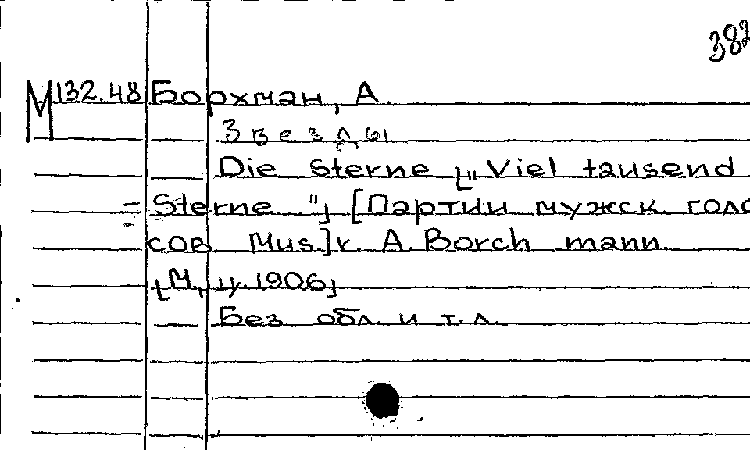 382
М 132.48 Борхман, А.
Звезды
Die Sterne ["Viel tausend
= Sterne "] [Партии мужск. голо
сов. Mus.] v. A. Borchmann
[М., ц. 1906]
Без обл. и т. л.